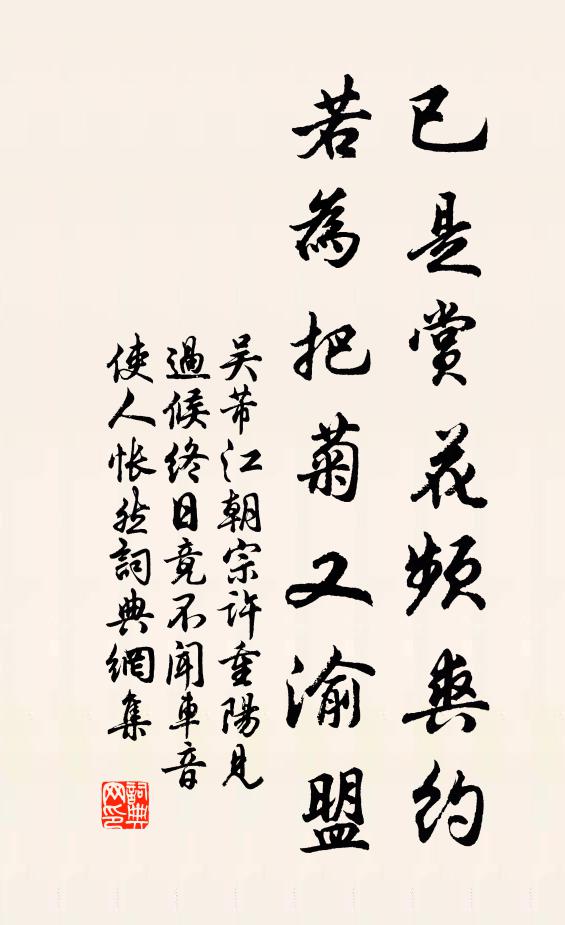 已是賞花頻爽約
若為把菊又渝盟
吴芾江朝宗許重陽見
過候終日竟不聞車音
使人悵然詞典網集
詞典
网印